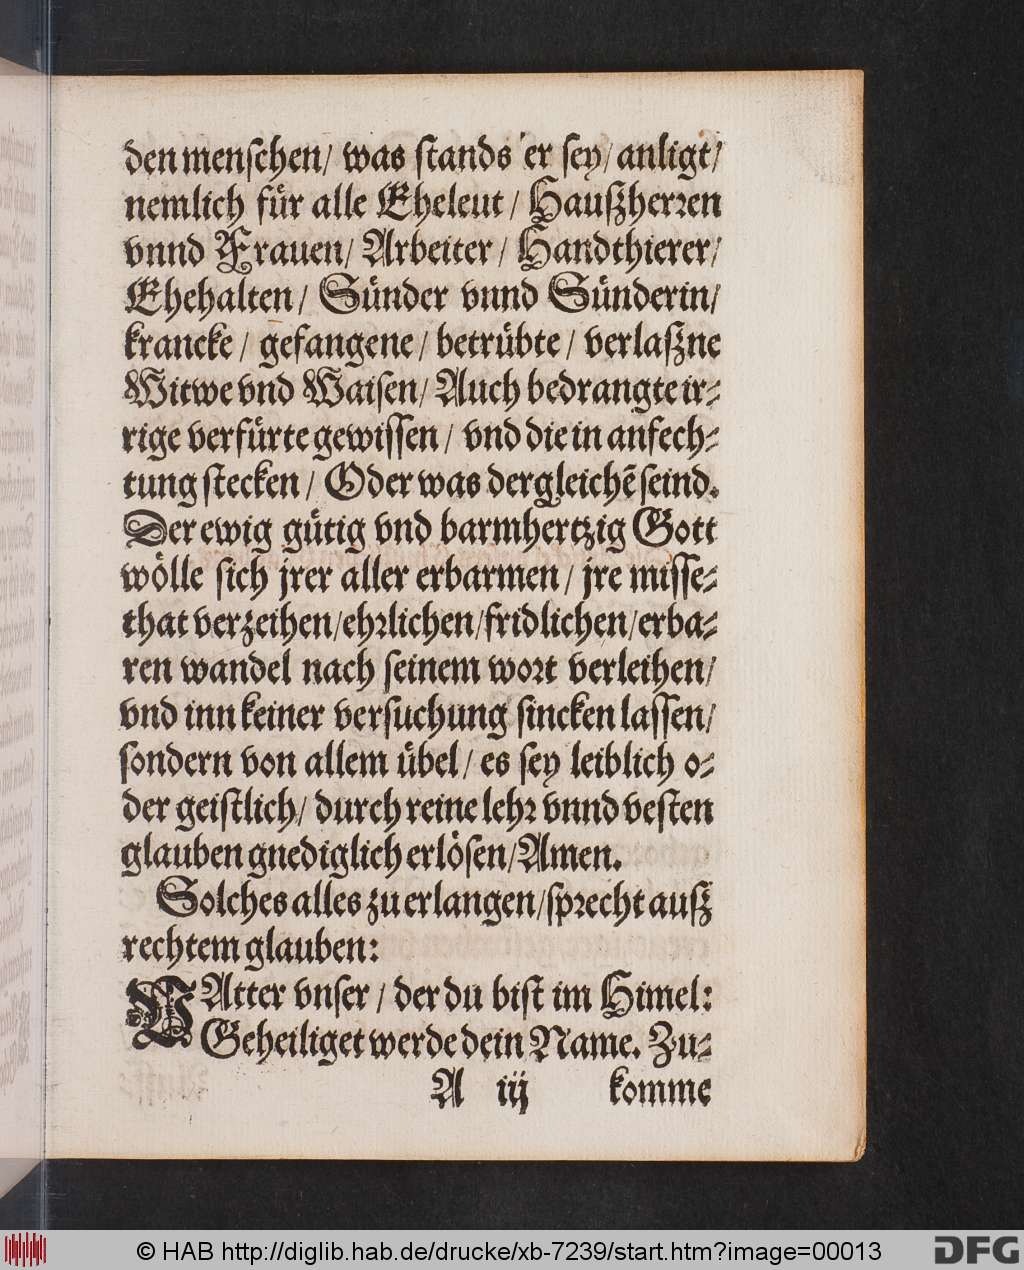 den menschen/ was stands er sey/ anligt/
nemlich für alle Eheleut / Haußherren
vnnd Frauen/ Arbeiter / Handthierer/
Ehehalten / Sünder vnnd Sünderin/
krancke / gefangene / betrübte / verlaßne
Witwe vnd Waisen/ Auch bedrangte ir⸗
rige verfürte gewissen / vnd die in anfech⸗
tung stecken / Oder was dergleichẽ seind.
Der ewig gütig vnd barmhertzig Gott
wölle sich jrer aller erbarmen / jre misse⸗
that verzeihen/ehrlichen/fridlichen/erba⸗
ren wandel nach seinem wort verleihen/
vnd inn keiner versuchung sincken lassen/
sondern von allem übel/ es sey leiblich o⸗
der geistlich/ durch reine lehr vnnd vesten
glauben gnediglich erlösen/Amen.
Solches alles zu erlangen/sprecht auß
rechtem glauben:
VAtter vnser / der du bist im Himel:
Geheiliget werde dein Name. Zu⸗
A iij komme
© HAB http://diglib.hab.de/drucke/xb-7239/start.htm?image=00013
DFG